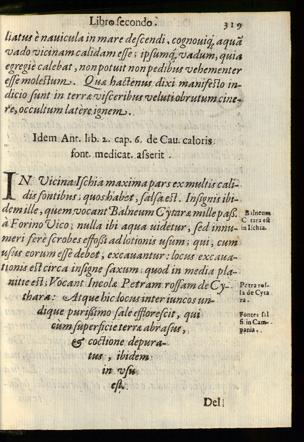 Libro secondo. 319
liatus è nauicula in mare descendi, cognouiq; aquã
vado vicinam calidam esse; ipsumq; vadum, quia
egregiè calebat, non potuit non pedibus vehementer
esse molestum. Quæ hactenus dixi manifesto in-
dicio sunt in terræ visceribus veluti obrutum cine-
re, occultum latere ignem.
Idem Ant. lib. 2. cap. 6. de Cau. caloris
font. medicat. asserit.
IN Vicina Ischia maxima pars ex multis cali-
dis fontibus, quos habet, salsa est. Insignis ibi-
dem ille, quem vocant Balneum Cytaræ mille pass.
à Forino Vico; nulla ibi aqua uidetur, sed innu-
meri ferè scrobes effossi ad lotionis usum; qui, cum
usus eorum esse debet, excauantur: locus excaua-
tionis est circa insigne saxum quod in media pla-
nitie est; Vocant Incolæ Petram rossam de Cy-
tharæ: Atque hic locus inter iuncos un-
dique purissimo sale efflorescit, qui
cum superficie terræ abrasus,
& coctione depura-
tus, ibidem
in vsu
est.
Balneum
Citara est
in Ischia.
Petra ros-
sa de Cyta
ra.
Fontes sal
si in Cam-
pania.
Del